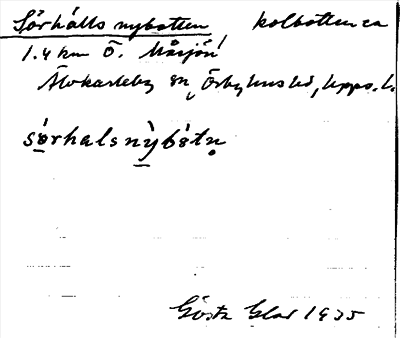 Sörhålls nybotten kolbotten ca
1.4 km Ö. Måsjön
Älvkarleby sn, Örbyhus hd, Upps. l.
sö̀rhalsnỳbótn̥
Gösta Glad 1935